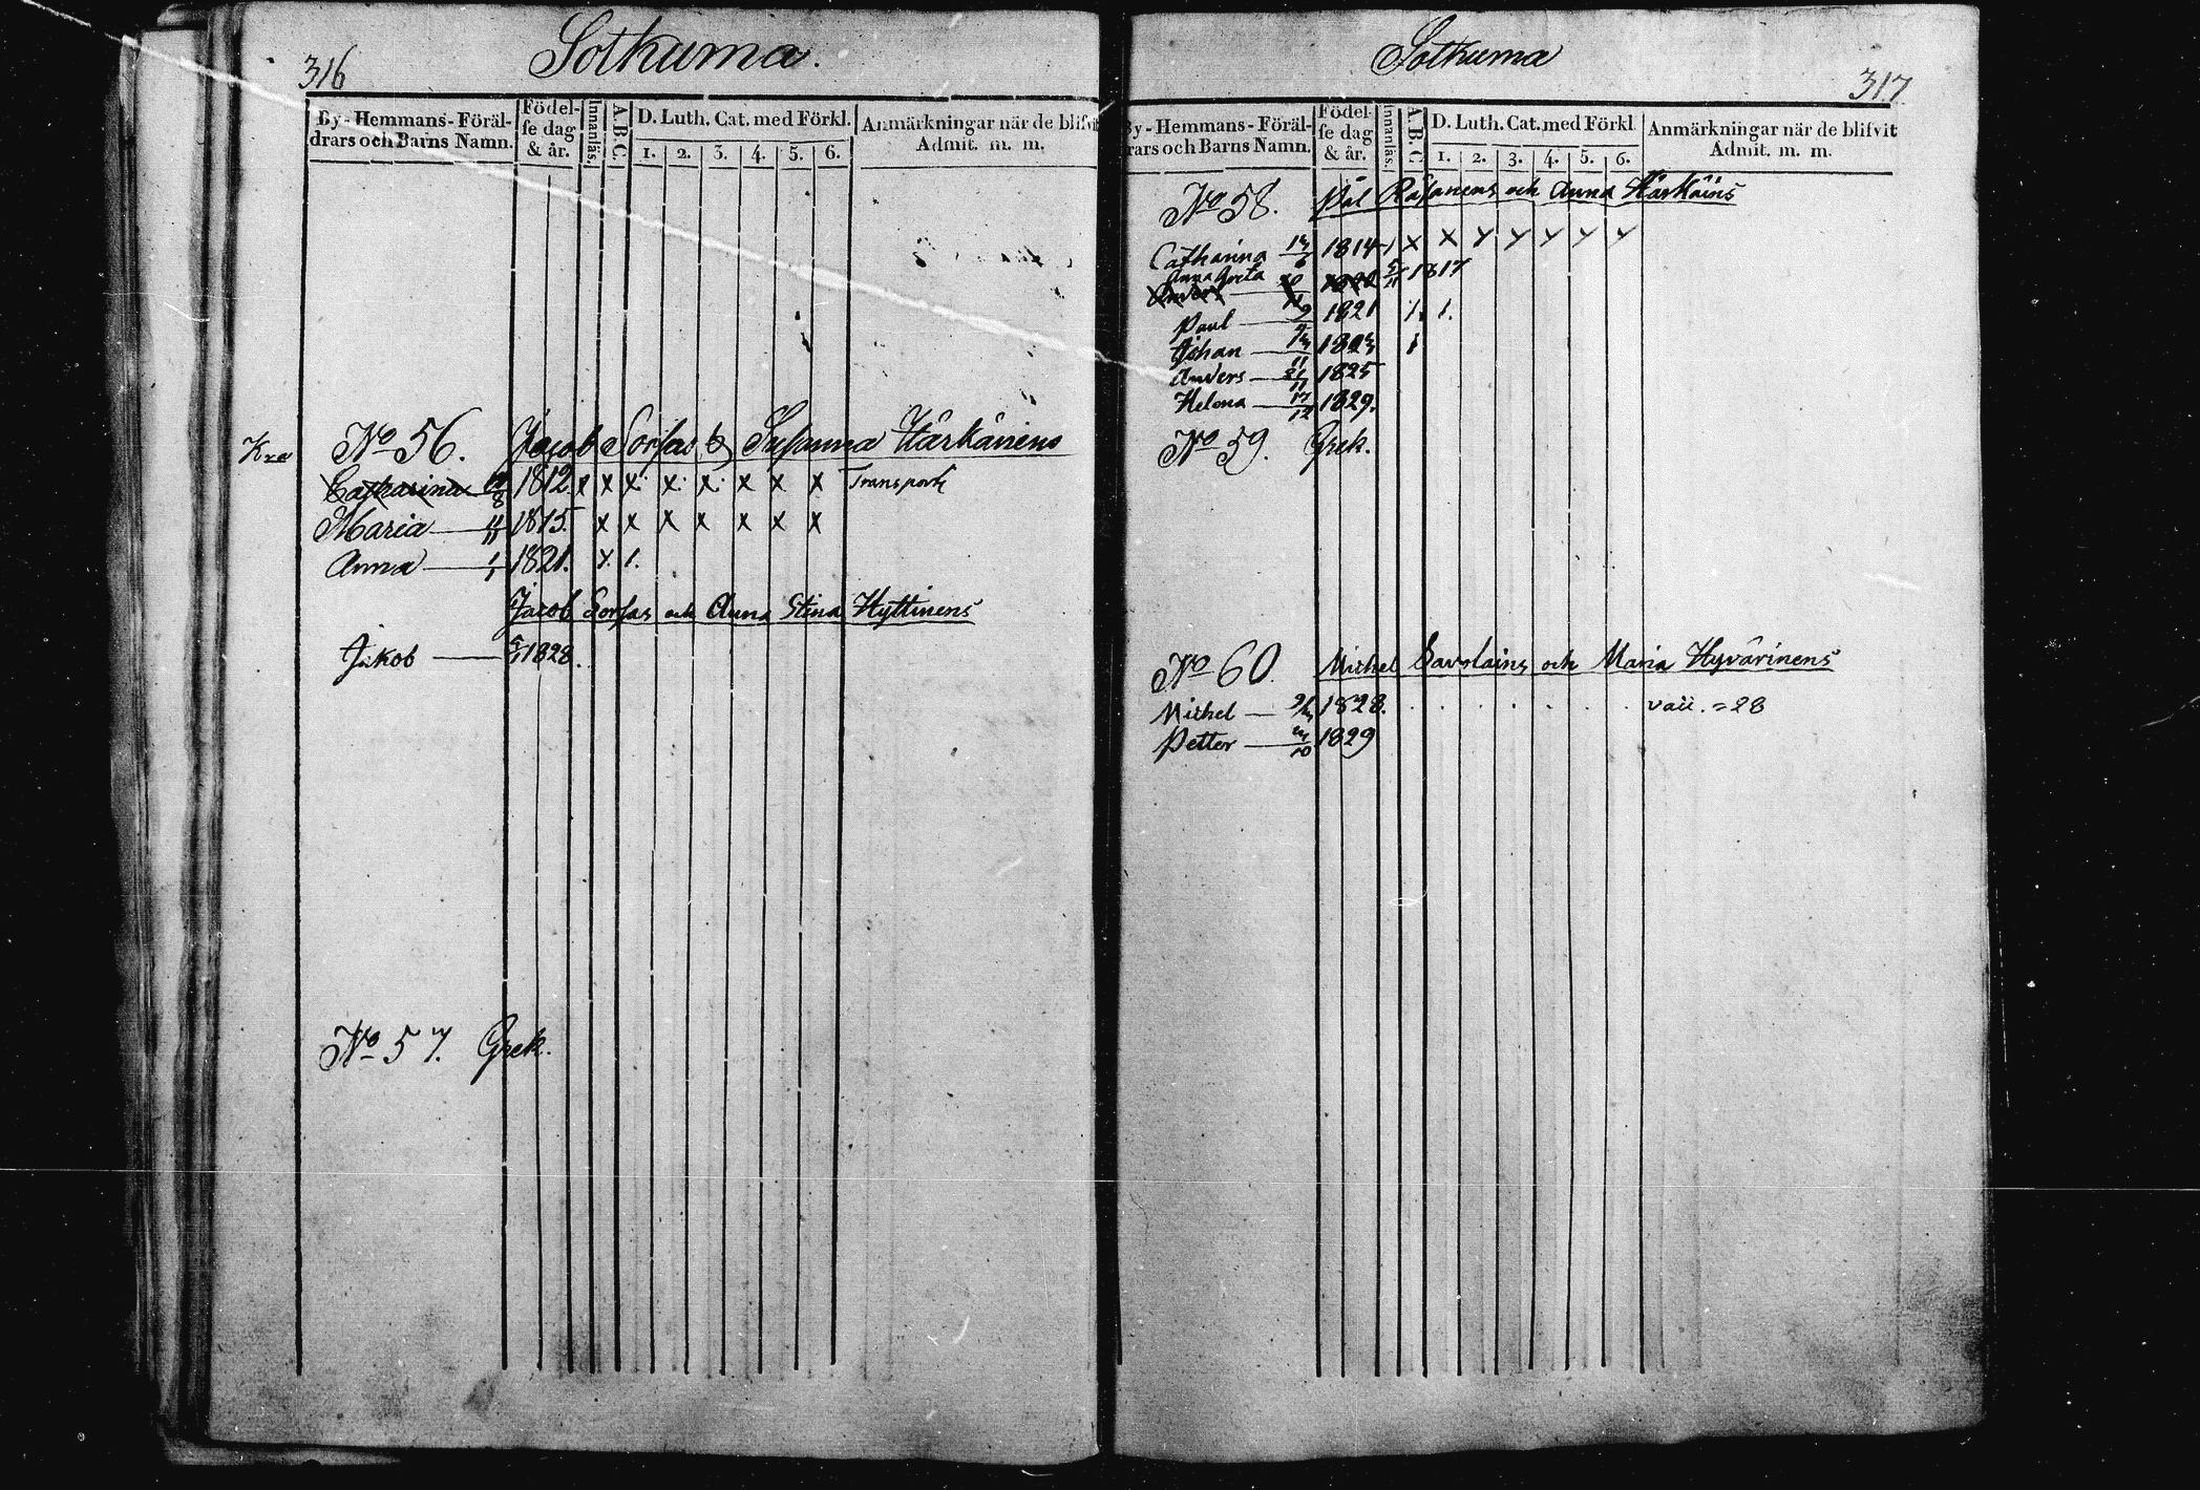 316
Sotkuma.
By-Hemmans-Föräl-
drars och Barns Namn.
Födel-
se dag
& år.
Innanläs.
A.B.C.
D. Luth. Cat. med Förkl.
1. 2. 3. 4. 5. 6.
Anmärkningar när de blifvit
Admit. m. m.
No 56. Jacob Sorsas & Susanna Härkänens
Catharina 1812. x x x x x x x x Transport
Maria 1815. x x x x x x x
Anna 1/1 1821. x. 1.
Jacob Sorsas och Anna Stina Hyttinens
Jakob 1828.
No 57. Grek.
Sotkuma
317
By-Hemmans-Föräl-
drars och Barns Namn.
Födel-
se dag
& år.
Innanläs.
A.B.C
D. Luth. Cat. med Förkl.
1. 2. 3. 4. 5. 6.
Anmärkningar när de blifvit
Admit. m. m.
No 58. Pål Räsänens och Anna Härkäins
Catharina 1814 x x y y y y y
Anna Greta 1817
Anders
Paul 1821 1. 1.
Johan 1
Anders 1825
Helena 17/12 1829.
No 59. Grek.
No 60. Michel Savolains och Maria Hyvärinens
Michel 1828. . . . . . . . vacc. =28
Petter 1829